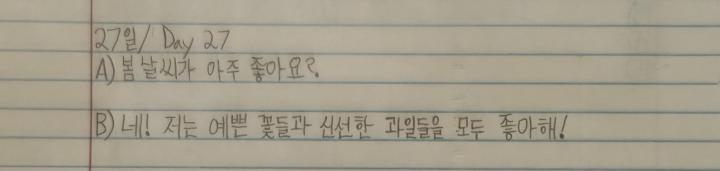 27일/ Day 27
A) 봄 날씨가 아주 좋아요?
B) 네! 저는 예쁜 꽃들과 신선한 과일들을 모두 좋아해!